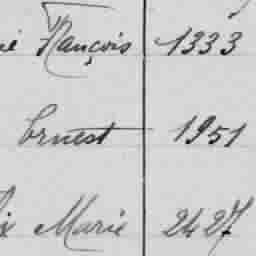 François 1333
Ernest 1951
ix Marie 2427